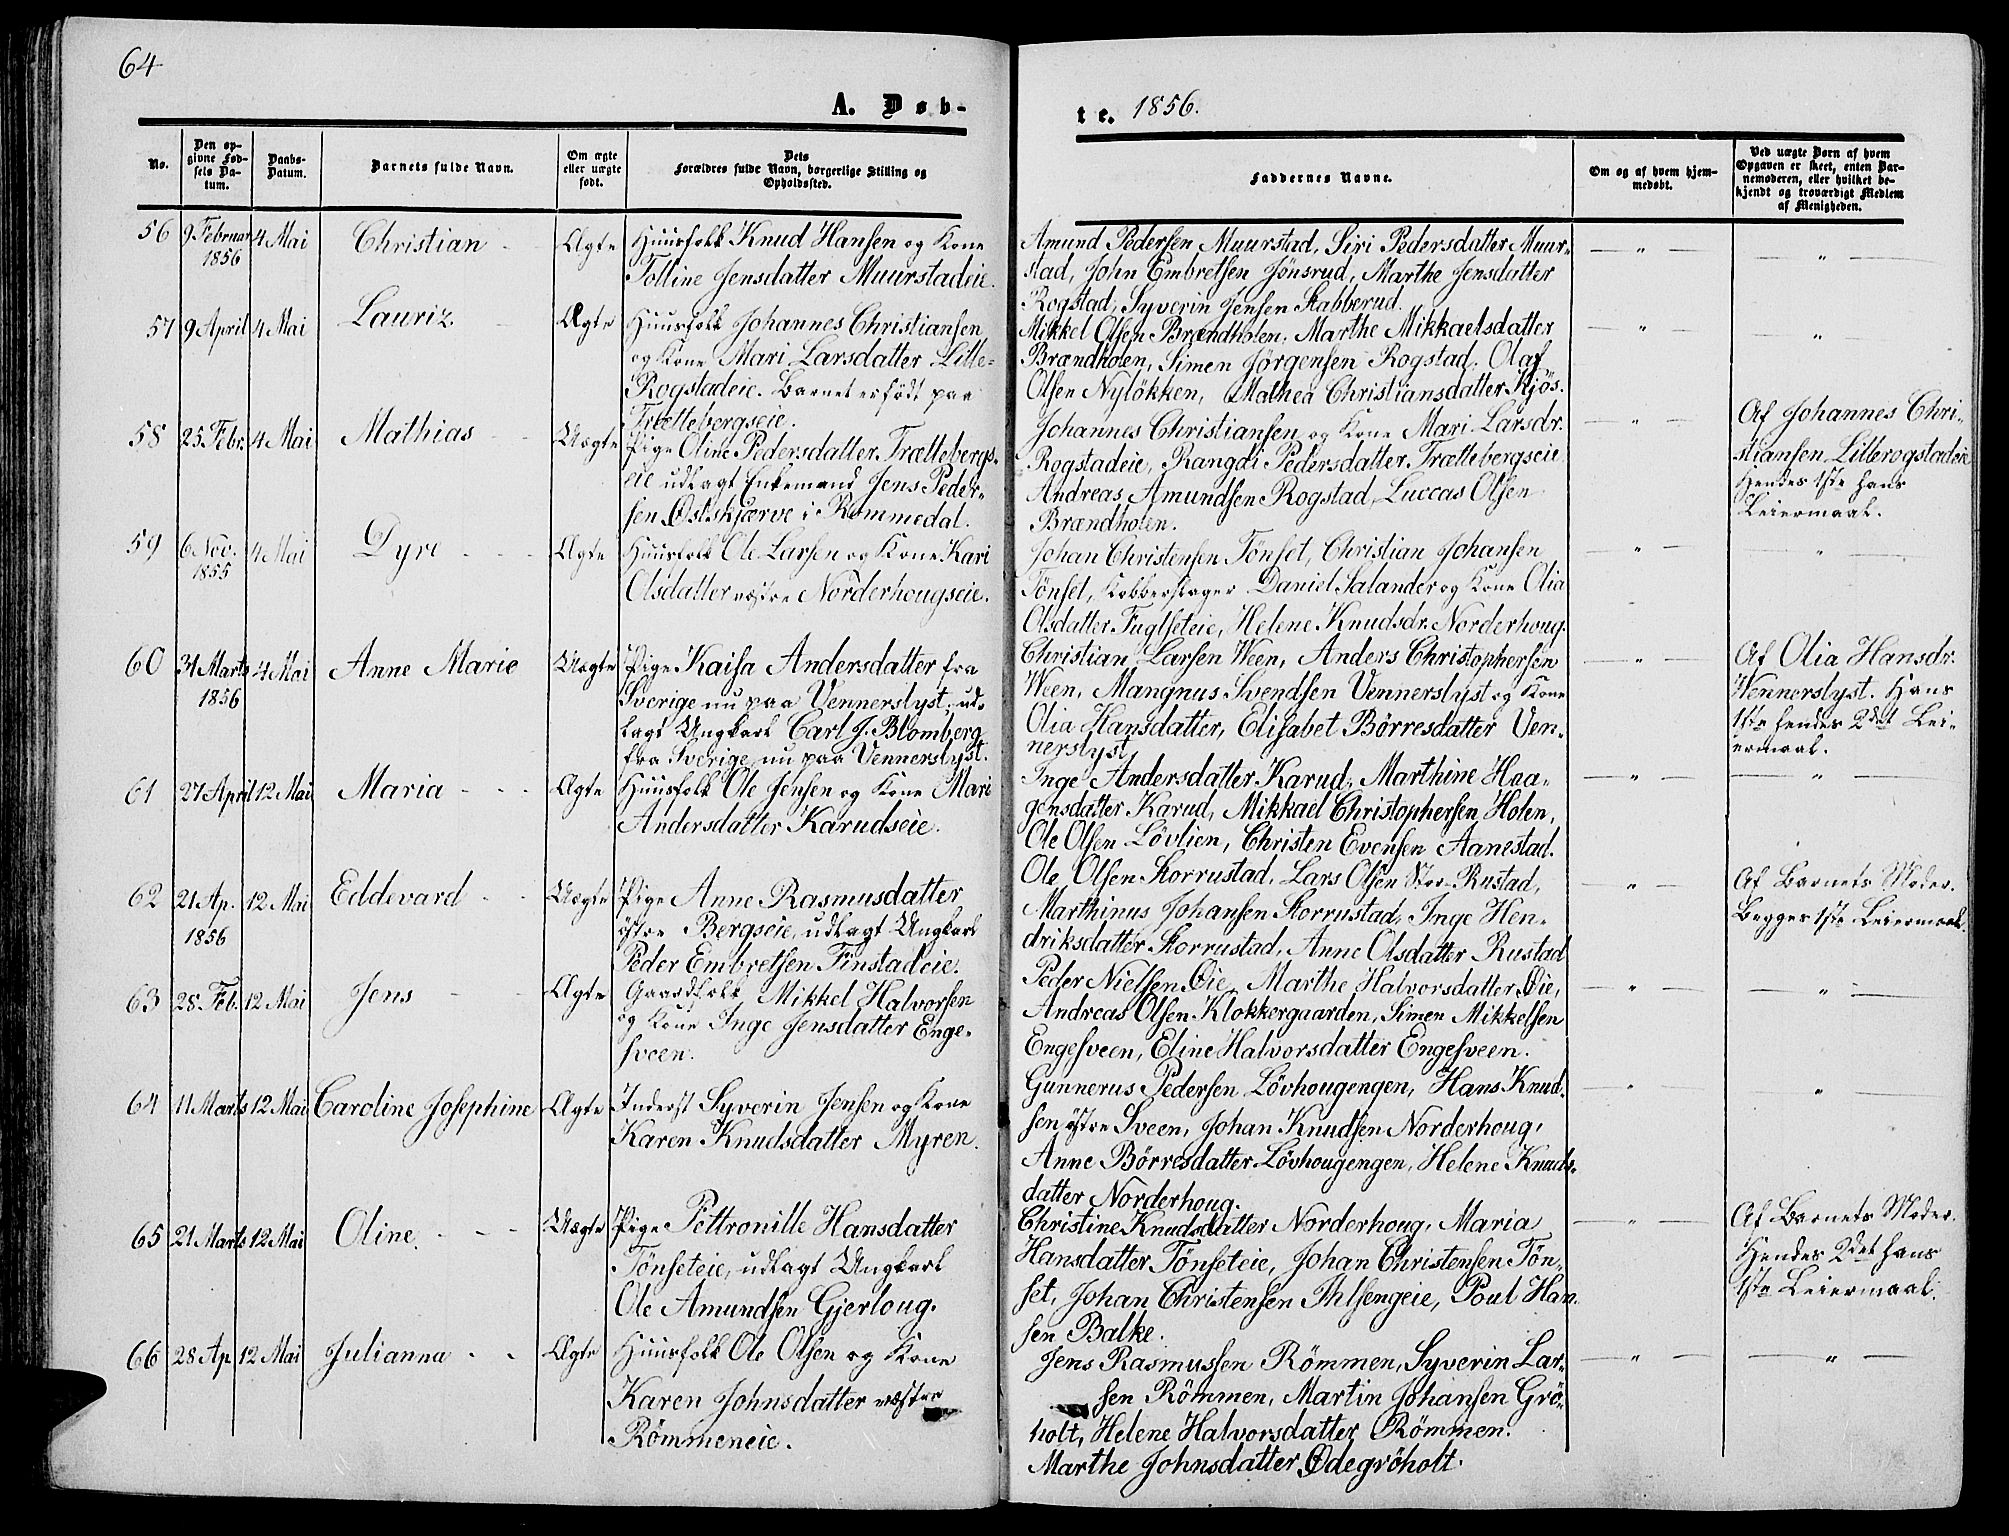 64
A. Døb-
te. 1856.
No.
Den op-
givne Fød-
sels Da-
tum.
Daabs-
Datum.
Barnets fulde Navn.
Om ægte
eller uægte
født.
Dets
Forældres fulde Navn, borgerlige Stilling og
Opholdssted.
Faddernes Navne.
Om og af hvem hjem-
medøbt.
Ved uægte Børn af hvem
Opgaven er skeet, enten Bar-
nemoderen, eller hvilket be-
kjendt og troværdigt Medlem
af Menigheden.
56 9 Februar 4 Mai Christian Ægte Huusfolk Knud Hansen og Kone
1856
Tolline Jensdatter Muurstadeie.
Amund Pedersen Muurstad, Siri Pedersdatter Muur-
stad, John Embretsen Jönsrud, Marthe Jensdatter
Rogstad, Syverin Jensen Stabberud.
57 9 April 4 Mai Lauriz. Ægte Huusfolk Johannes Christiansen
og Kone Mari Larsdatter Lille-
Rogstadeie. Barnet er født paa
Trættebergseie.
Mikkel Olsen Brændholen, Marthe Mikkaelsdatter
Brændholen, Simen Jørgensen Rogstad. Olaf
Olsen Nyløkken, Mathea Christiansdatter Kjös.
58 25. Febr. 4 Mai Mathias Uægte Pige Oline Pedersdatter Trættebergs-
eie udlagt Enkemand Jens Peder-
sen Østskjærve i Rommedal.
Johannes Christiansen og Kone Mari Larsdr.
Rogstadeie, Rangdi Pedersdatter Trættebergseie
Andreas Amundsen Rogstad, Luccas Olsen
Brændholen.
Af Johannes Chri-
stiansen Lillerogstadeie
Hendes 1ste hans
Leiermaal.
59 6 Nov. 4 Mai Dyre Ægte Huusfolk Ole Larsen og Kone Kari
1855
Olsdatter østre Norderhougseie.
Johan Christensen Tönset, Christian Johansen
Tönset, Kobberslager Daniel Salander og Kone Olia
Olsdatter Fuglseteie, Helene Knudsdr. Norderhoug.
60 31 Marts 4 Mai Anne Marie Uægte Pige Kaisa Andersdatter fra
1856
Sverige nu paa Vennerslyst, ud-
lagt Ungkarl Carl J. Blomberg
fra Sverige nu paa Vennerslyst.
Christian Larsen Ween, Anders Christophersen
Ween, Mangnus Svendsen Vennerslyst og Kone
Olia Hansdatter, Elisabet Börresdatter Ven-
nerslyst.
Af Olia Hansdr.
Wennerslyst. Hans
1ste hendes 2det Lei-
ermaal.
61 27 April 12 Mai Maria Ægte Huusfolk Ole Jensen og Kone Mari
Andersdatter Karudseie.
Inge Andersdatter Karud, Marthine Haa-
gensdatter Karud, Mikkael Christophersen Holen,
Ole Olsen Lövlien, Christen Evensen Aanestad.
62 21 Ap. 12 Mai Eddevard Uægte Pige Anne Rasmusdatter
1856
östre Bergseie, udlagt Ungkarl
Peder Embretsen Finstadeie.
Ole Olsen Storrustad, Lars Olsen Stor-Rustad,
Marthinus Johansen Storrustad, Inge Hen-
driksdatter Storrustad, Anne Olsdatter Rustad
Af Barnets Moder.
Begges 1ste Leiermaal.
63 28. Feb. 12 Mai Jens Ægte Gaardfolk Mikkel Halvorsen
og Kone Inge Jensdatter Enge-
sveen.
Peder Nielsen Øie, Marthe Halvorsdatter Øie,
Andreas Olsen Klokkergaarden, Simen Mikkelsen
Engesveen, Eline Halvorsdatter Engesveen.
64 11 Marts 12 Mai Caroline Josephine Ægte Inderst Syverin Jensen og Kone
Karen Knudsdatter Myren.
Gunnerus Pedersen Lövhougengen, Hans Knud-
sen østre Sveen, Johan Knudsen Norderhoug,
Anne Börresdatter Lövhougengen, Helene Knuds-
datter Norderhoug.
65 21 Marts 12 Mai Oline. Uægte Pige Pettronille Hansdatter
Tönseteie, udlagt Ungkarl
Ole Amundsen Gjerloug.
Christine Knudsdatter Norderhoug, Maria
Hansdatter Tönseteie, Johan Christensen Tön-
set, Johan Christensen Ihlsengeie, Poul Han-
sen Balke.
Af Barnets Moder.
Hendes 2det hans
1ste Leiermaal.
66 28 Ap 12 Mai Julianna Ægte Huusfolk Ole Olsen og Kone
Karen Johnsdatter østre
Römmeneie.
Jens Rasmussen Römmen, Syverin Lar-
sen Römmen, Martin Johansen Grö-
holt, Helene Halvorsdatter Römmen.
Marthe Johnsdatter Ødegröholt.